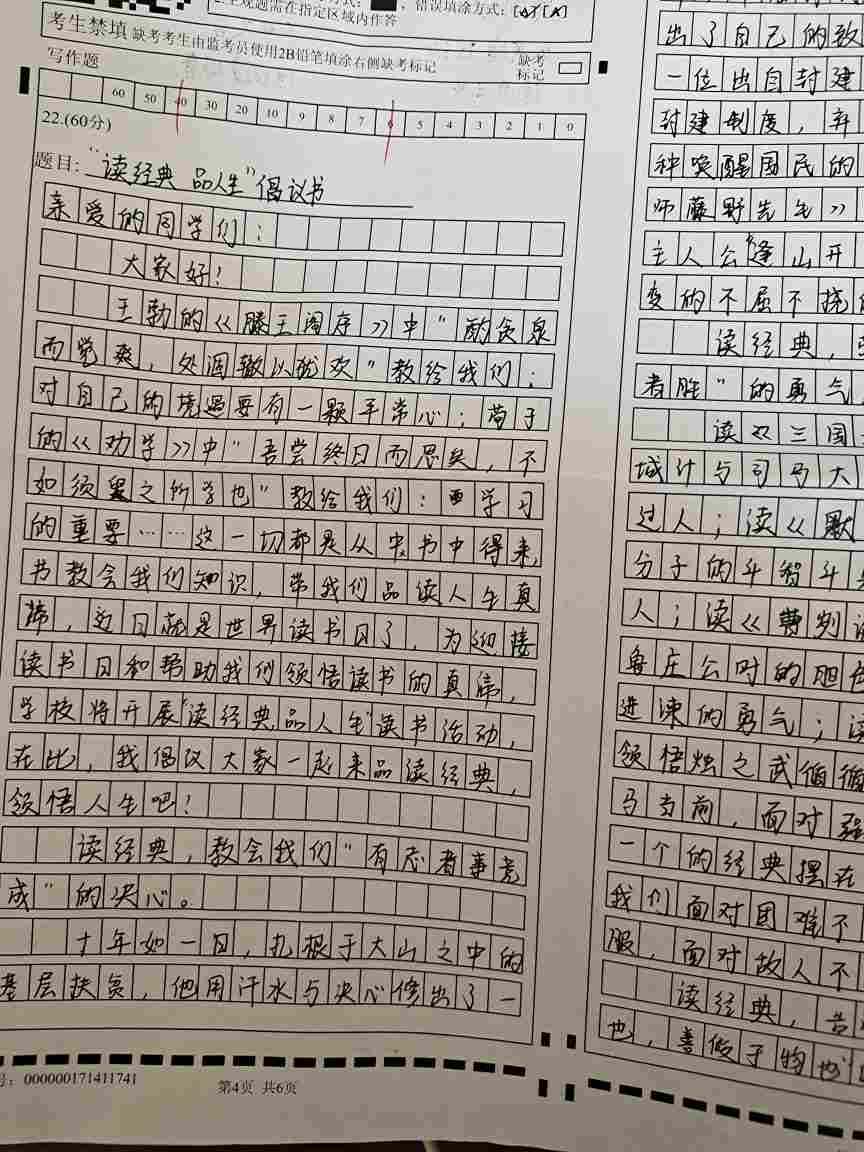 2.主观题需在指定区域内作答
错误填涂方式：
考生禁填 缺考考生由监考员使用2B铅笔填涂右侧缺考标记
缺考
标记
写作题
60 50 40 30 20 10 9 8 7 6 5 4 3 2 1 0
22.(60分)
题目：“读经典 品人生”倡议书
亲爱的同学们：
大家好！
王勃的《滕王阁序》中“酌贪泉
而觉爽，处涸辙以犹欢”教给我们：
对自己的境遇要有一颗平常心；荀子
的《劝学》中“吾尝终日而思矣，不
如须臾之所学也”教给我们：学习
的重要……这一切都是从书中得来，
书教会我们知识，带我们品读人生真
谛，近日就是世界读书日了，为迎接
读书日和帮助我们领悟读书的真谛，
学校将开展“读经典品人生”读书活动，
在此，我倡议大家一起来品读经典，
领悟人生吧！
读经典，教会我们“有志者事竟
成”的决心。
十年如一日，扎根于大山之中的
基层扶贫，他用汗水与决心修出了一
号：000000171411741
第4页 共6页
出了自己的
一位出自封建
封建制度，弃
种唤醒国民的
师藤野先生》
主人公“逢山开
变的不屈不挠
读经典，
者胜”的勇气
读《三国
城计与司马大
过人；读《
分子的斗智斗
人；读《曹刿
鲁庄公时的胆
进谏的勇气；
领悟烛之武
马当前，面对强
一个的经典摆在
我们面对困难不
服，面对故人不
读经典，
也，善假于物也